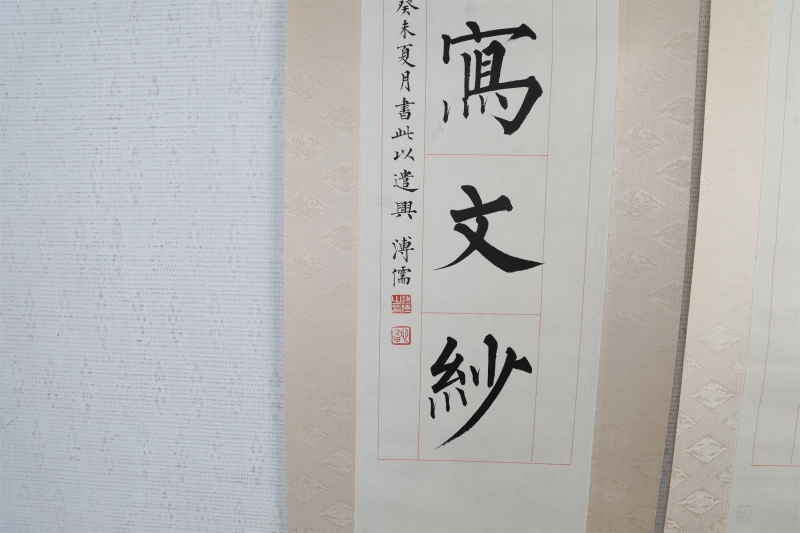 寫文紗
癸未夏月書此以遣興 溥儒